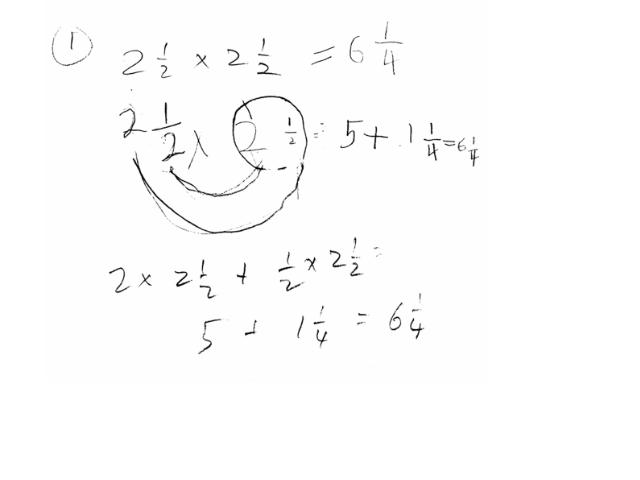 ① 2 1/2 × 2 1/2 = 6 1/4
2 1/2 × 2 1/2 = 5 + 1 1/4 = 6 1/4
2 × 2 1/2 + 1/2 × 2 1/2 =
5 + 1 1/4 = 6 1/4